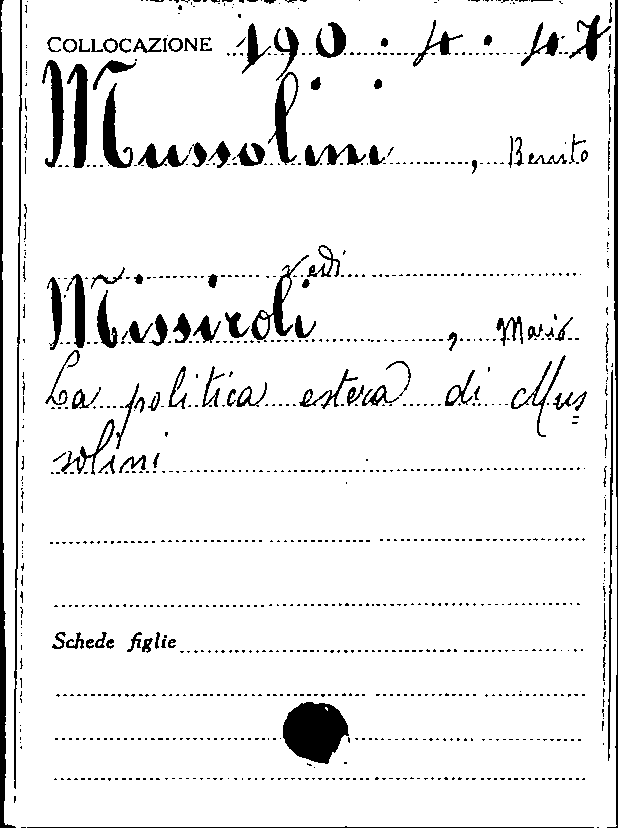 COLLOCAZIONE 190.4.47
Mussolini, Benito
vedi
Missiroli, Mario
La politica estera di Mus=
solini
Schede figlie